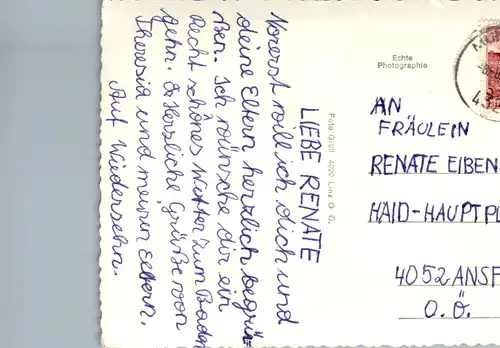 LIEBE RENATE
Vorerst will ich dich und
deine Eltern herzlich begrü-
ßen. Ich wünsche dir ein
Recht schönes Wetter zum Baden
gehn. Herzliche Grüße von
Theresia und meinen Eltern.
Auf Wiedersehn.
Foto Groll 4020 Linz O. Ö.
Echte
Photographie
AN
FRÄULEIN
RENATE EIBEN
HAID-HAUPTPL
4052 ANSF
O.Ö.